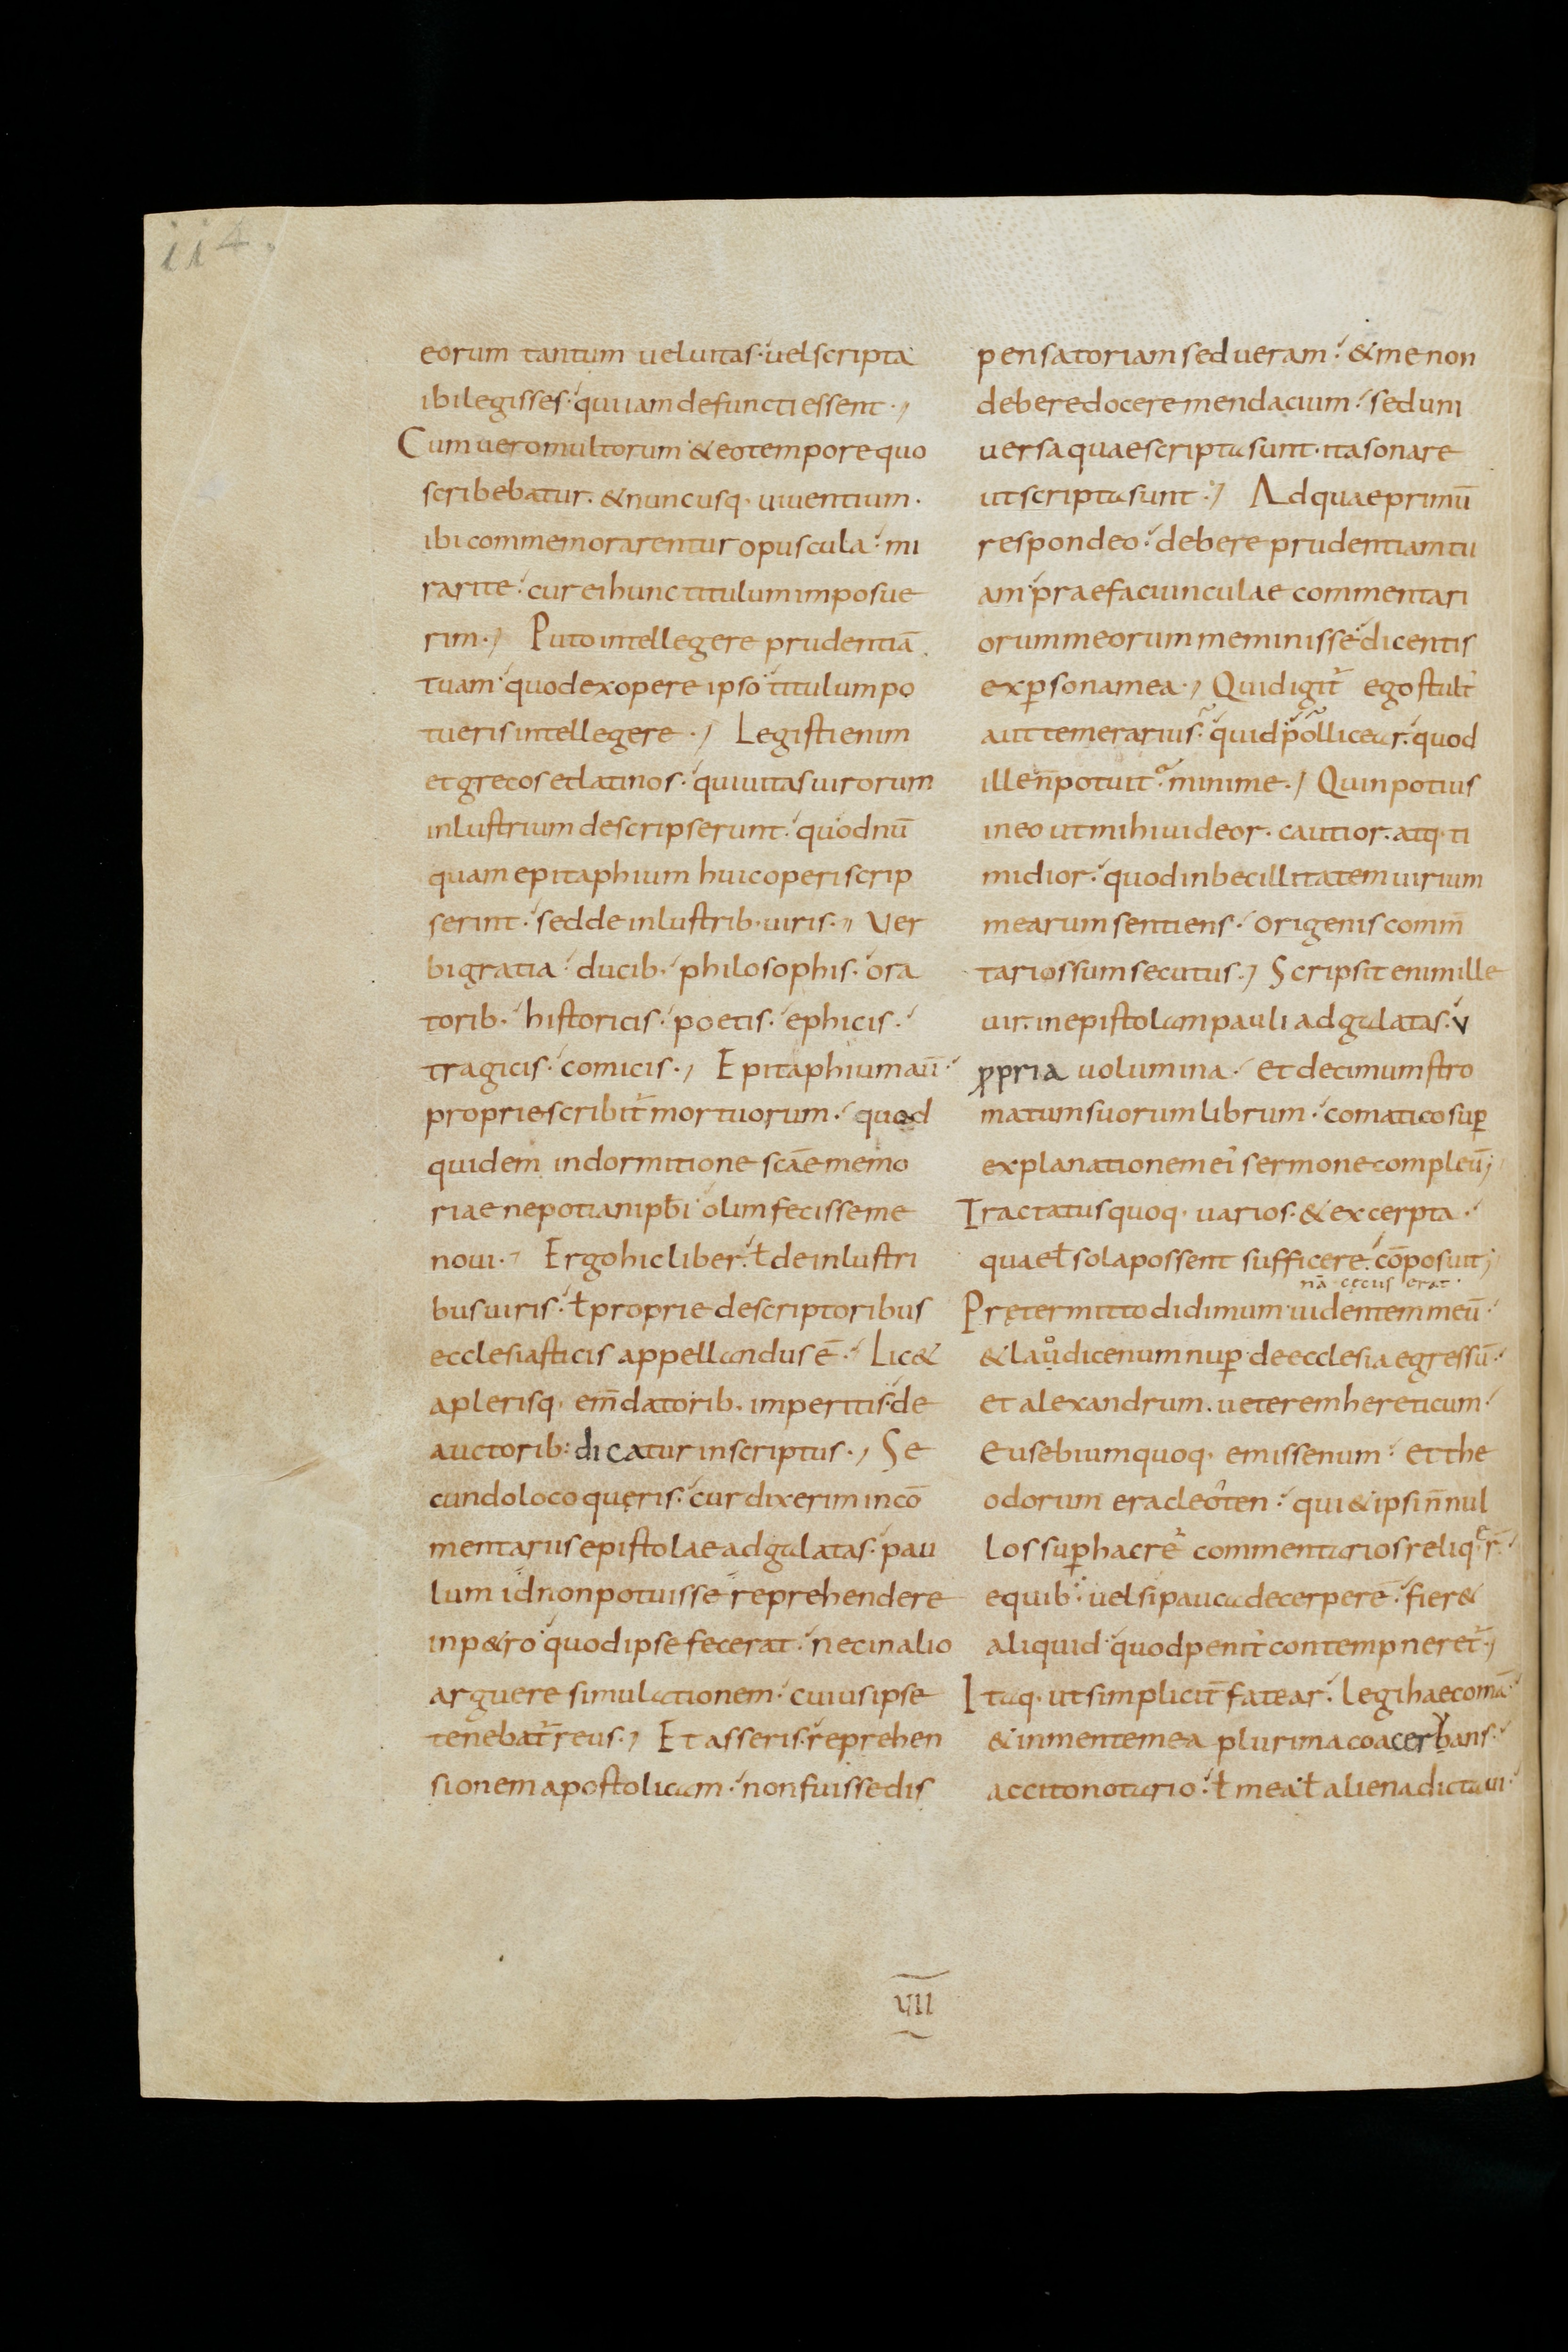 114.
eorum tantum uel uitas· uel scripta
ibi legisses· qui iam defuncti essent·,
Cum uero multorum & eo tempore quo
scribebatur. & nunc usq· uiuentium.
ibi commemorarentur opuscula· mi
rari te· cur ei hunc titulum imposue
rim·, Puto intellegere prudentiā
tuam· quod ex opere ipso titulum po
tueris intellegere·, Legisti enim
et grecos et latinos· qui uitas uirorum
inlustrium descripserunt· quod nū
quam epitaphium huic operi scrip
serint· sed de inlustrib· uiris·, Ver
bi gratia· ducib· philosophis· ora
torib· historicis· poetis· ephicis·
tragicis· comicis·, Epitaphium aū·
proprie scribit̄ mortuorum· quod
quidem in dormitione scāe memo
riae nepotiani p̄bi olim fecisse me
noui·, Ergo hic liber· ł de inlustri
bus uiris· ł proprie de scriptoribus
ecclesiasticis appellandus ē· Lic&
a plerisq· em̄datorib· imperitis· de
auctorib: dicatur inscriptus·, Se
cundo loco queris· cur dixerim in cō
mentariis epistolae ad galatas· pau
lum id non potuisse reprehendere
in p&ro· quod ipse fecerat· nec in alio
arguere simulationem· cuius ipse
tenebat̄ reus·, Et asseris· reprehen
sionem apostolicam· non fuisse dis
pensatoriam sed ueram· & me non
debere docere mendacium· sed uni
uersa quae scripta sunt· ita sonare
ut scripta sunt·, Ad quae primū
respondeo· debere prudentiam tu
am· praefaciunculae commentari
orum meorum meminisse· dicentis
ex p̱sona mea·, Quid igit̄ ego stult'
aut temerarius· quid pollicear· quod
ille n̄ potuit· minime·, Quin potius
in eo ut mihi uideor. cautior. atq· ti
midior· quod inbecillitatem uirium
mearum sentiens· origenis comm̄
tarios sum secutus·, Scripsit enim ille
uir. in epistolam pauli ad galatas· v
ꝓpria uolumina· et decimum stro
matum suorum librum· comatico suꝑ
explanatione mei sermone compleū;
Tractatus quoq· uarios· & excerpta·
quae ł sola possent sufficere· cōposuit;
nā cęcus erat·
Prętermitto didimum· uidentem meū·
& lauͦdicenum nuꝑ de ecclesia egressū·
et alexandrum. ueterem hereticum·
Eusebium quoq· emissenum· et the
odorum eracleôten· qui & ipsi n̄nul
los suꝑ hac re commentarios reliqe· r̄·
e quib· uel si pauca decerpere· fier&
aliquid· quod penit' contempneret̄·,
Itaq· ut simpliciť fatear· legi haec omā·
& in mente mea plurima coacerbans·
accito notario· ł mea· ł aliena dictaui·
VII